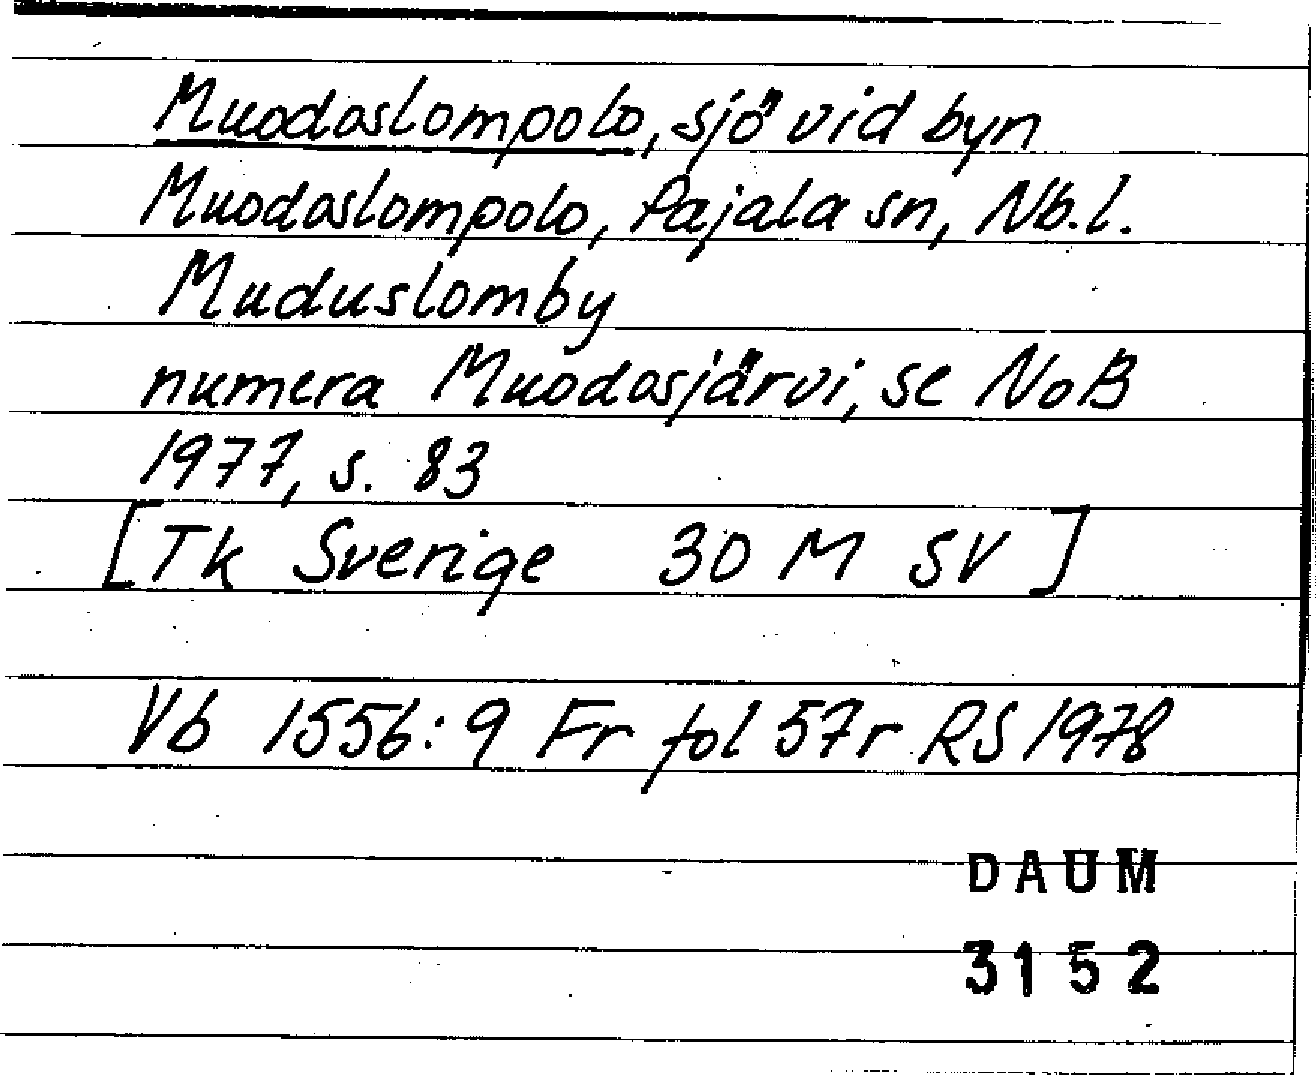 Muodoslompolo, sjö vid byn
Muodoslompolo, Pajala sn, Nb.l.
Muduslomby
numera Muodosjärvi, se NoB
1977, s. 83
[Tk Sverige 30 M SV]
Vb 1556:9 Fr fol 57r RS 1978
DAUM
3152